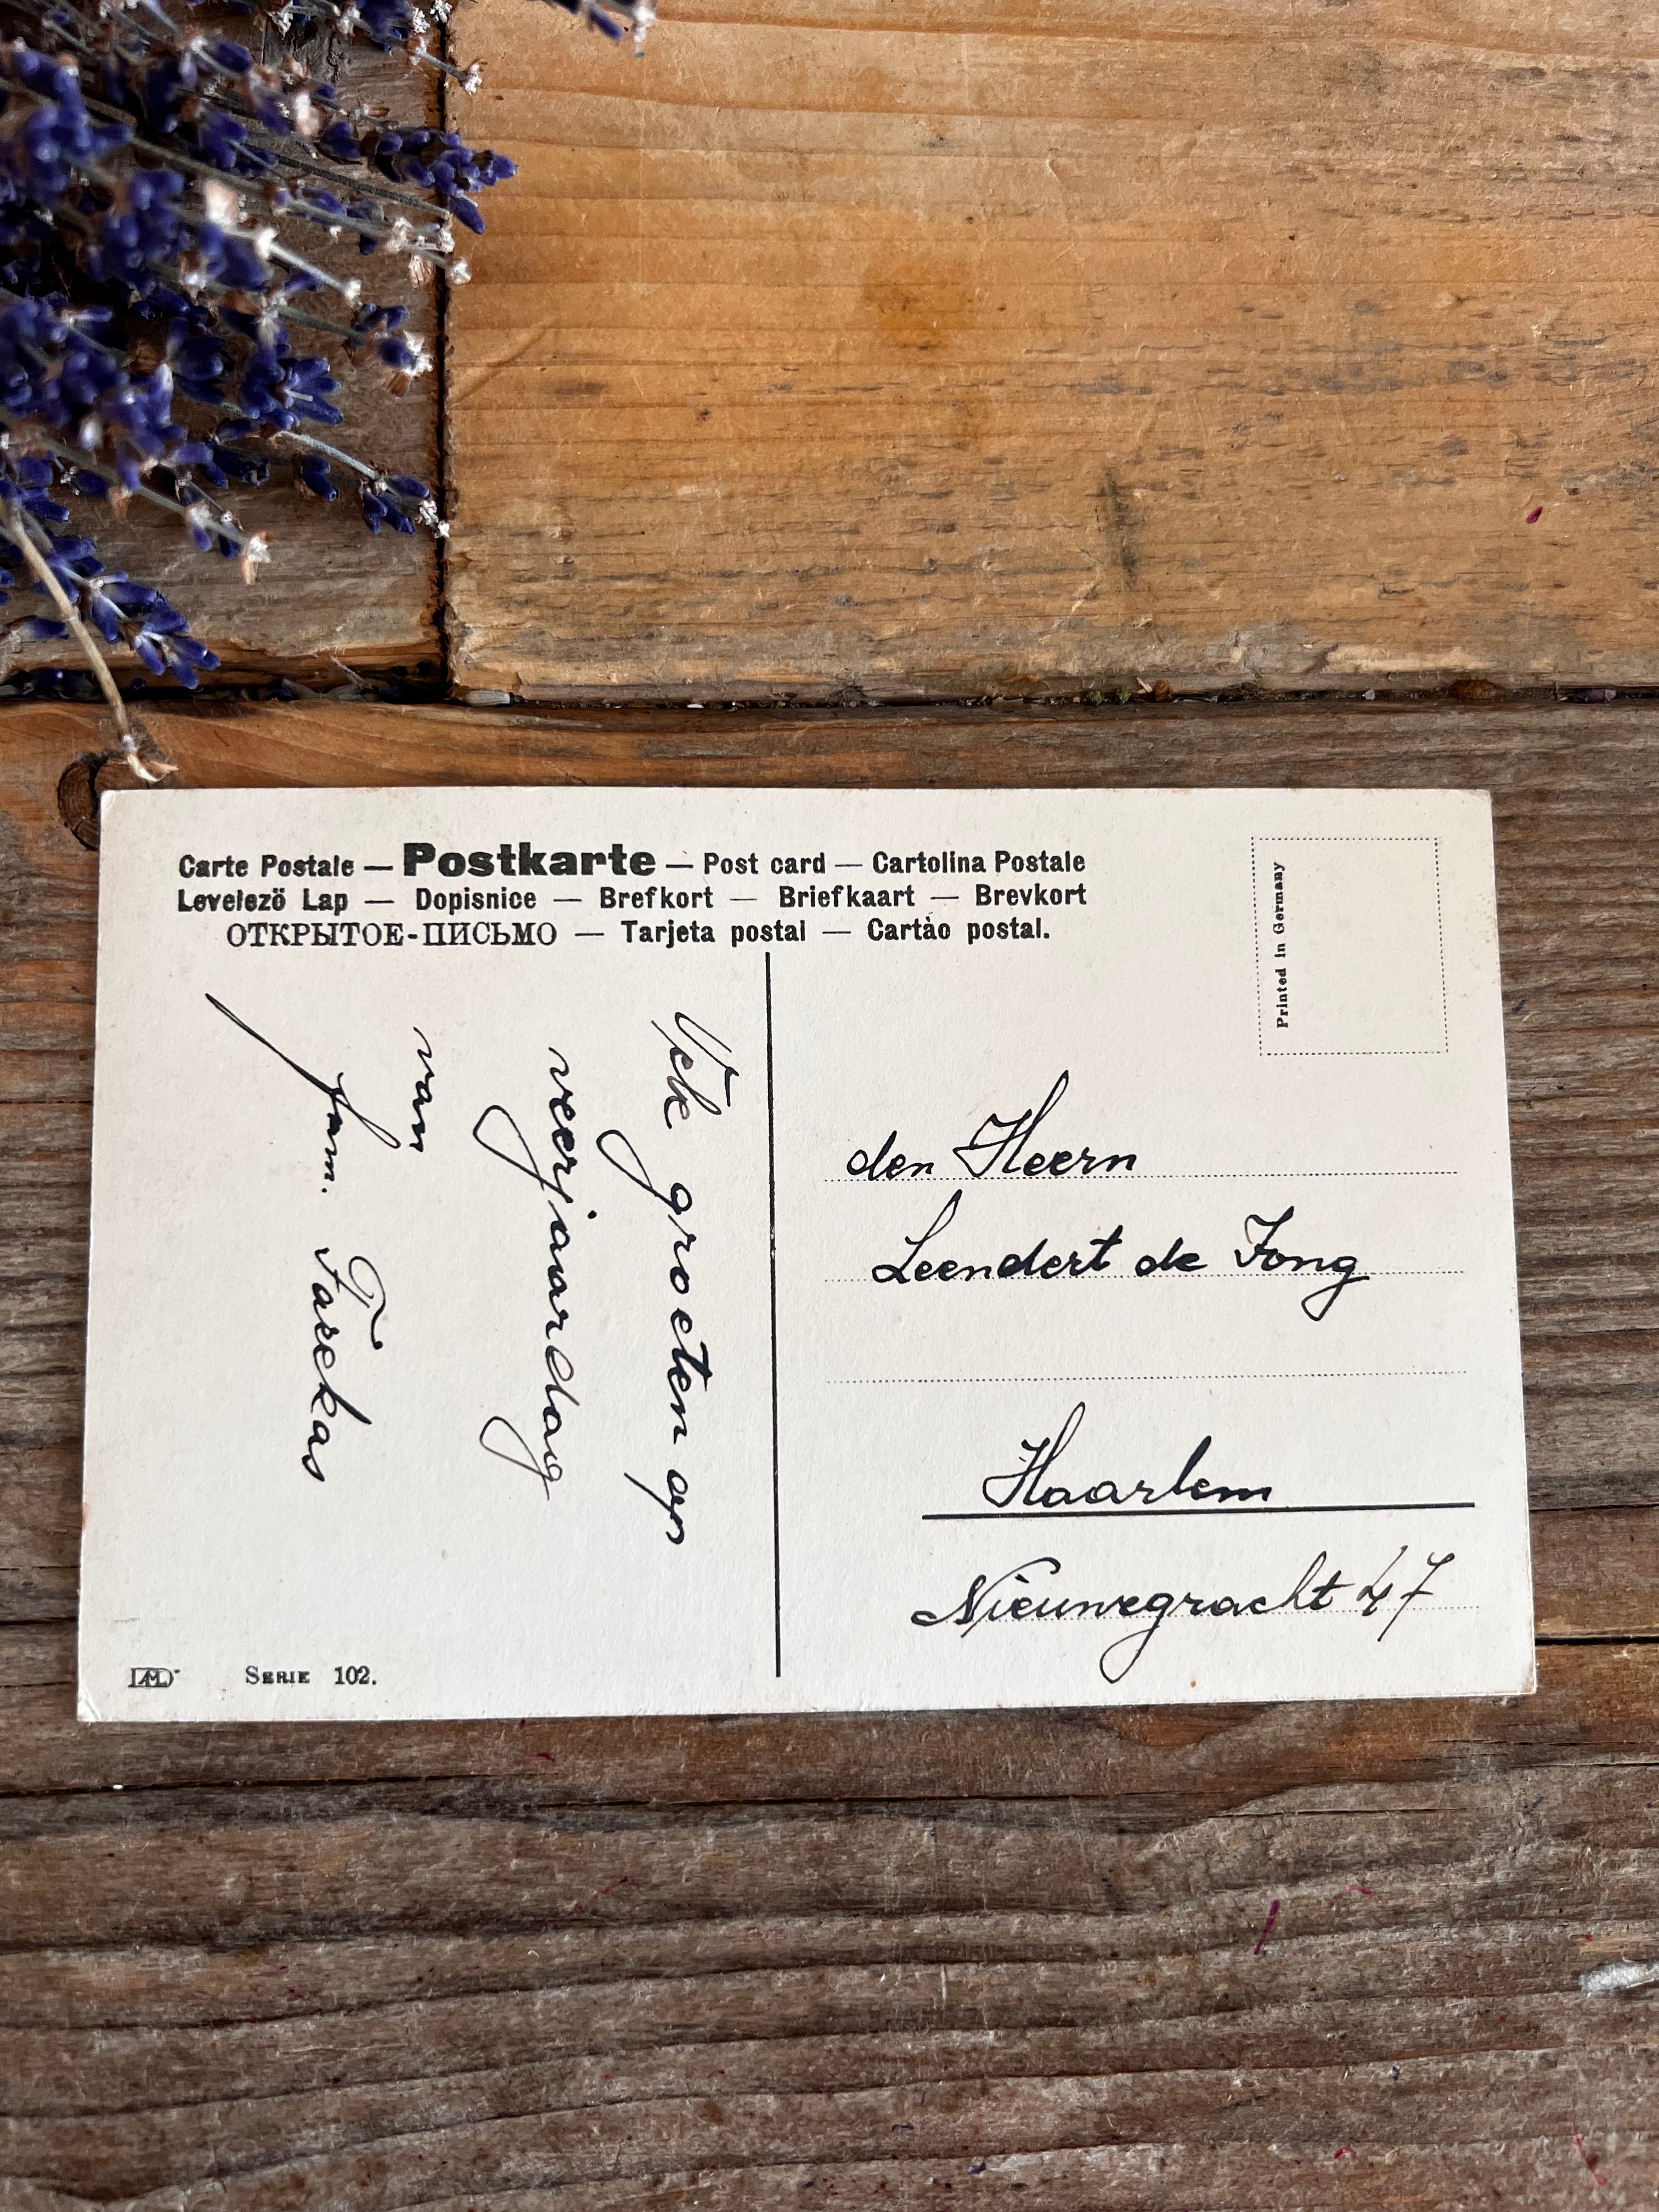 Carte Postale — Postkarte — Post card — Cartolina Postale
Levelezö Lap — Dopisnice — Brefkort — Briefkaart — Brevkort
ОТКРЫТОЕ-ПИСЬМО — Tarjeta postal — Cartào postal.
Printed in Germany
groeten op
veerjaardag
van
fam. Farekas
den Heern
Leendert de Jong
Haarlem
Nieuwegracht 47
SERIE 102.